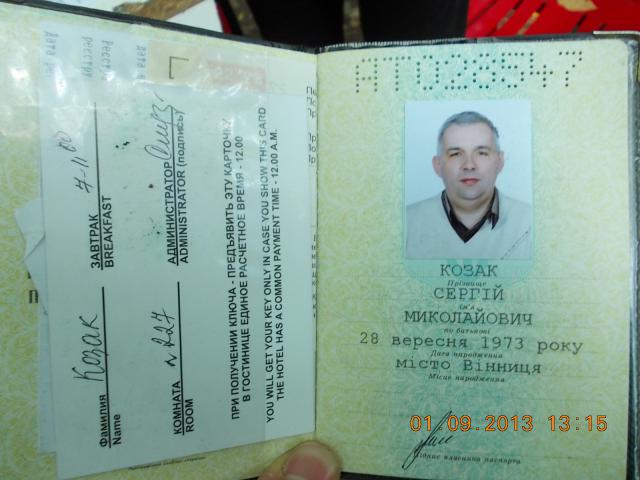 Фамилия
Name
Козак
ЗАВТРАК
BREAKFAST
7-11 00
КОМНАТА
ROOM
№ 227
АДМИНИСТРАТОР
ADMINISTRATOR (подпись)
ПРИ ПОЛУЧЕНИИ КЛЮЧА - ПРЕДЪЯВИТЬ ЭТУ КАРТОЧКУ
В ГОСТИНИЦЕ ЕДИНОЕ РАСЧЕТНОЕ ВРЕМЯ - 12.00
YOU WILL GET YOUR KEY ONLY IN CASE YOU SHOW THIS CARD
THE HOTEL HAS A COMMON PAYMENT TIME - 12.00 A.M.
АТ028547
КОЗАК
Прізвище
СЕРГІЙ
Ім'я
МИКОЛАЙОВИЧ
по батькові
28 вересня 1973 року
Дата народження
місто Вінниця
Місце народження
01.09.2013 13:15
Підпис власника паспорта